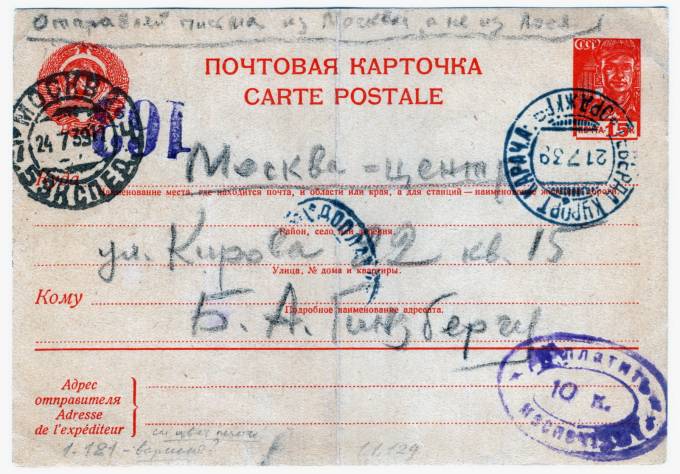 Отправляй письма из Москвы, а не из Лося!
СССР
ПОЧТОВАЯ КАРТОЧКА
CARTE POSTALE
15 К
МОСКВА
24 7 39
ЭКСПЕД.
168
КУРОРТ ЦХРАЧА
21 7 39
Куда
Москва-центр
Наименование места, где находится почта, и области или края, а для станций — наименование
ДОПЛА
Район, село или деревня.
ул. Кирова 22 кв. 15
Улица, № дома и квартиры.
Кому
Подробное наименование адресата.
Б. А. Гинзбергу
Доплатить
10 к.
Адрес
отправителя
Adresse
de l'expéditeur
1-181 -
11.129